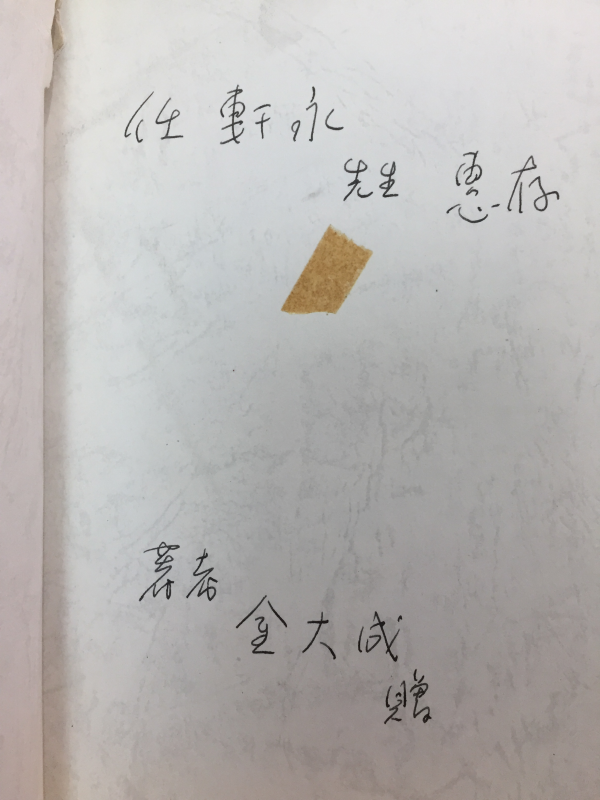 任 軒永
先生 惠存
著者
金大成
贈